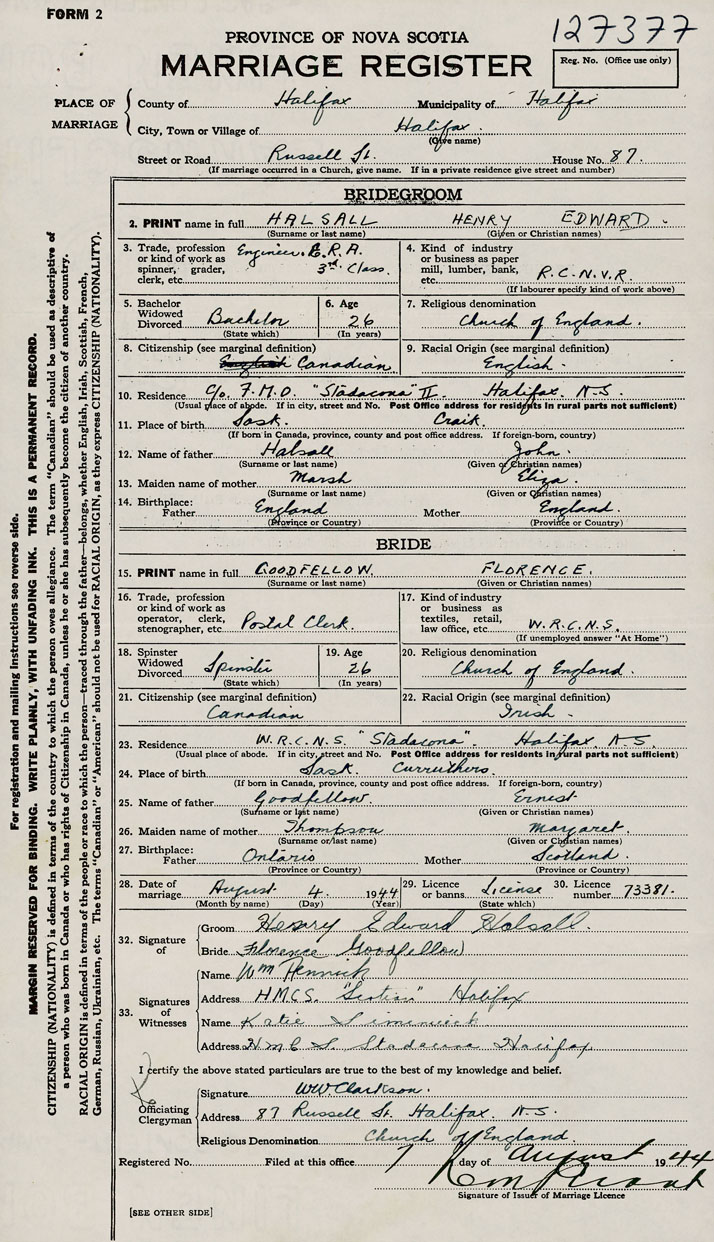 FORM 2
127377
PROVINCE OF NOVA SCOTIA
MARRIAGE REGISTER
Reg. No. (Office use only)
PLACE OF MARRIAGE
County of Halifax Municipality of Halifax
City, Town or Village of Halifax.
(Give name)
Street or Road Russell St. House No. 87.
(If marriage occurred in a Church, give name. If in a private residence give street and number)
BRIDEGROOM
2. PRINT name in full HALSALL HENRY EDWARD.
(Surname or last name) (Given or Christian names)
3. Trade, profession or kind of work as spinner, grader, clerk, etc. Engineer. E.R.A. 3rd Class.
4. Kind of industry or business as paper mill, lumber, bank, etc. R.C.N.V.R.
(If labourer specify kind of work above)
5. Bachelor Widowed Divorced Bachelor
(State which)
6. Age 26
(In years)
7. Religious denomination
Church of England.
8. Citizenship (see marginal definition)
English Canadian
9. Racial Origin (see marginal definition)
English.
10. Residence c/o. F.M.O. "Stadacona" II Halifax. N.S.
(Usual place of abode. If in city, street and No. Post Office address for residents in rural parts not sufficient)
11. Place of birth Sask. Craik.
(If born in Canada, province, county and post office address. If foreign-born, country)
12. Name of father Halsall John.
(Surname or last name) (Given or Christian names)
13. Maiden name of mother Marsh Eliza.
(Surname or last name) (Given or Christian names)
14. Birthplace: Father England Mother England.
(Province or Country) (Province or Country)
BRIDE
15. PRINT name in full GOODFELLOW. FLORENCE.
(Surname or last name) (Given or Christian names)
16. Trade, profession or kind of work as operator, clerk, stenographer, etc. Postal Clerk.
17. Kind of industry or business as textiles, retail, law office, etc. W.R.C.N.S.
(If unemployed answer "At Home")
18. Spinster Widowed Divorced Spinster
(State which)
19. Age 26
(In years)
20. Religious denomination
Church of England.
21. Citizenship (see marginal definition)
Canadian
22. Racial Origin (see marginal definition)
Irish.
23. Residence W.R.C.N.S. "Stadacona" Halifax, N.S.
(Usual place of abode. If in city, street and No. Post Office address for residents in rural parts not sufficient)
24. Place of birth Sask. Curruthers.
(If born in Canada, province, county and post office address. If foreign-born, country)
25. Name of father Goodfellow. Ernest.
(Surname or last name) (Given or Christian names)
26. Maiden name of mother Thompson Margaret.
(Surname or last name) (Given or Christian names)
27. Birthplace: Father Ontario Mother Scotland.
(Province or Country) (Province or Country)
28. Date of marriage August 4. 1944
(Month by name) (Day) (Year)
29. Licence or banns. License
(State which)
30. Licence number 73381.
32. Signature of
Groom Henry Edward Halsall.
Bride Florence Goodfellow
33. Signatures of Witnesses
Name Wm
Address H.M.C.S. "Scotian" Halifax
Name Katie
Address H.M.C.S. Stadacona Halifax
I certify the above stated particulars are true to the best of my knowledge and belief.
Officiating Clergyman
Signature WW Clarkson.
Address 87 Russell St. Halifax. N.S.
Religious Denomination Church of England.
Registered No. Filed at this office 7 day of August 1944
Signature of Issuer of Marriage Licence
[SEE OTHER SIDE]
For registration and mailing instructions see reverse side.
MARGIN RESERVED FOR BINDING. WRITE PLAINLY, WITH UNFADING INK. THIS IS A PERMANENT RECORD.
CITIZENSHIP (NATIONALITY) is defined in terms of the country to which the person owes allegiance. The term "Canadian" should be used as descriptive of
a person who was born in Canada or who has rights of Citizenship in Canada, unless he or she has subsequently become the citizen of another country.
RACIAL ORIGIN is defined in terms of the people or race to which the person—traced through the father—belongs, whether English, Irish, Scottish, French,
German, Russian, Ukrainian, etc. The terms "Canadian" or "American" should not be used for RACIAL ORIGIN, as they express CITIZENSHIP (NATIONALITY).